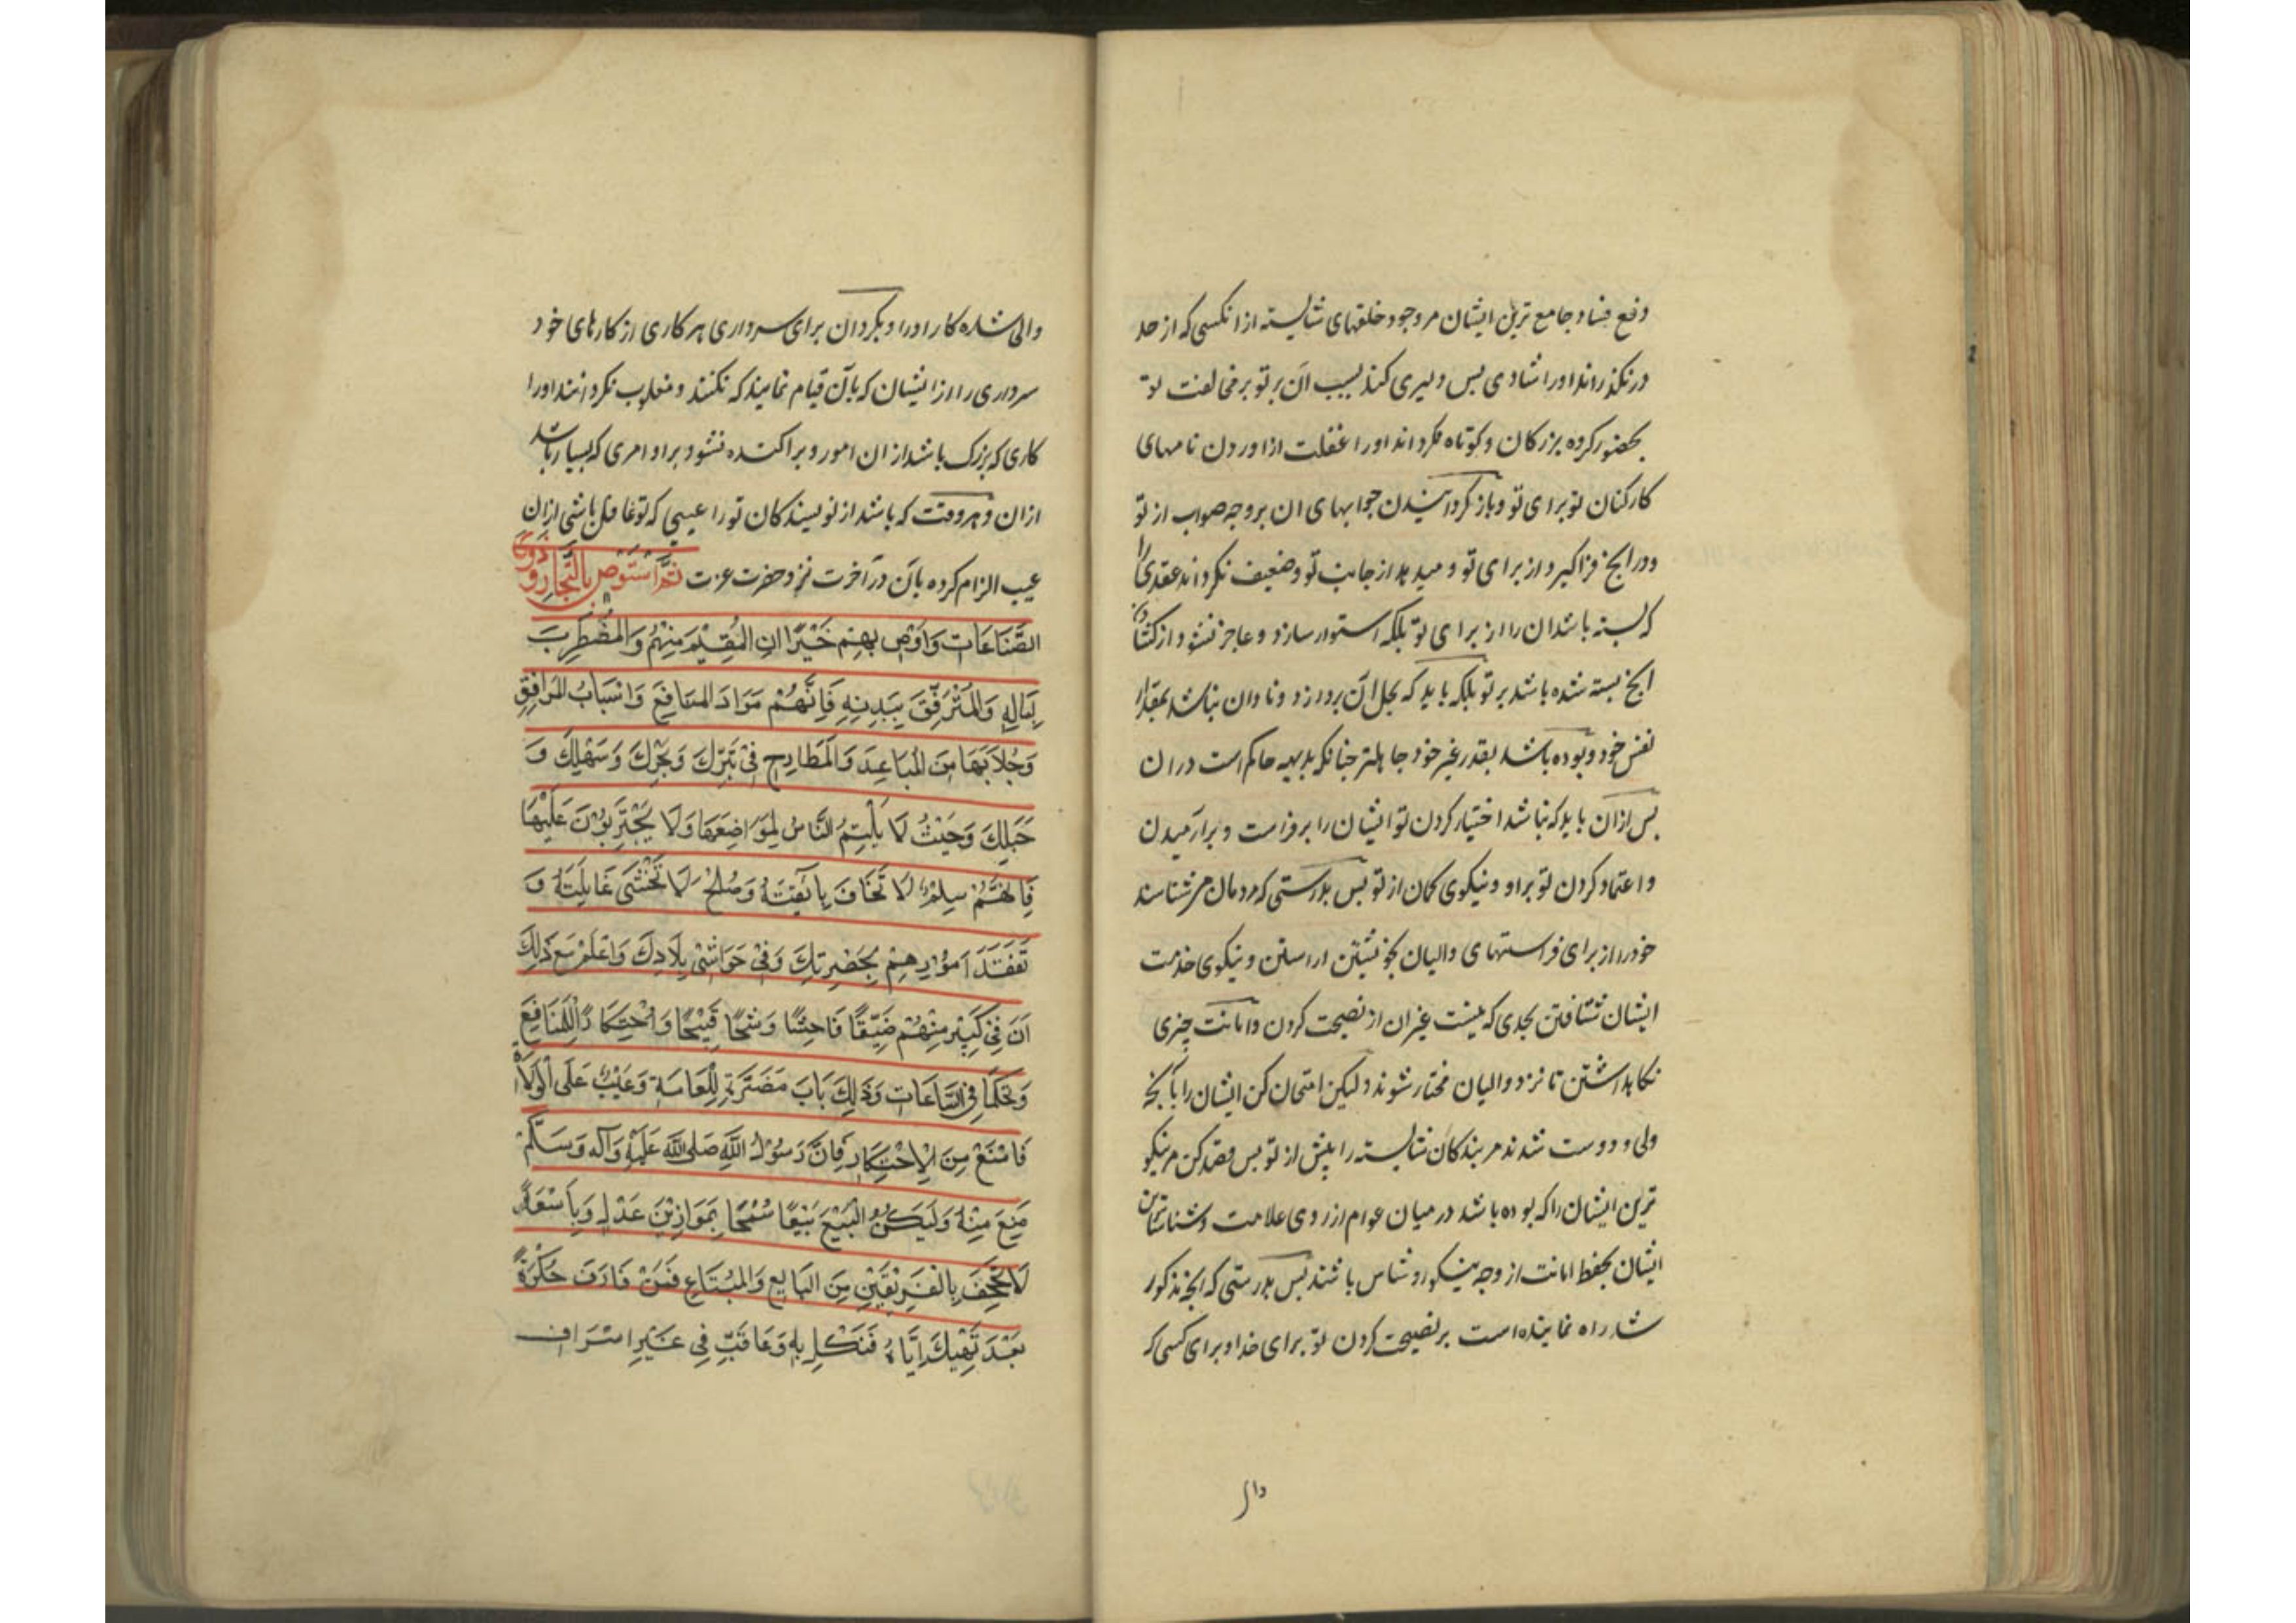 دفع فساد و جامع ترین ایشان مر وجود خلقهای شایسته از انکسی که از حد
درنکذراند او را شادی پس دلیری کند بسبب آن بر تو بر مخالفت تو
بحضور کروه بزرکان و کوتاه نکرداند او را غفلت از اوردن نامهای
کارکنان تو برای تو و باز کردانیدن جوابهای ان بر وجه صواب از تو
و در انچ فرا کیرد از برای تو و میدهد از جانب تو و ضعیف نکرداند عقدی را
که بسته باشد ان را از برای تو بلکه استوار سازد و عاجز نشود از کشادن
انچ بسته شده باشد بر تو بلکه باید که بحل آن پردازد و نادان نباشد بمقدار
نفس خود و بوده باشد بقدر غیر خود جاهلتر چنانکه بدیهه حاکم است در ان
پس ازان باید که نباشد اختیار کردن تو ایشان را بر فراست و برارمیدن
و اعتماد کردن تو براو و نیکوی کمان از تو پس بدرستی که مردمان مر شناسند
خود را از برای فراستهای والیان بخویشتن اراستن و نیکوی خدمت
ایشان شتافتن بحدی که نیست غیر ان از نصیحت کردن و امانت چیزی
نکاهداشتن تا نزد والیان مختار شوند ولیکن امتحان کن ایشان را بآنچه
ولی و دوست شدند مر بندکان شایسته را پیش از تو پس قصد کن مر نیکو
ترین ایشان را که بوده باشد در میان عوام از روی علامت و شناساترین
ایشان بحفظ امانت از وجه نیکو رو شناس باشند پس بدرستی که انچه مذکور
شد راه نماینده است بر نصیحت کردن تو برای خدا و برای کسی که
وال
والی شده کار او را و بکردان برای سرداری هر کاری از کارهای خود
سرداری را از ایشان که بآن قیام نمایند که نکنند و مغلوب نکردانند او را
کاری که بزرک باشد از ان امور و پراکنده نشود براو امری که بسیار باشد
ازان و هر وقت که باشد از نویسندکان تو را عیبی که تو غافل باشی ازان
عیب الزام کرده بآن در آخرت نزد حضرت عزت ثُمَّ اسْتَوْصِ بِالتُّجَّارِ وَ ذَوِی
الصَّنَاعَاتِ وَاَوْصِ بِهِمْ خَیْرًا انِ المُقِیْمَ مِنْهُمْ وَالمُضْطَرِبَ
بِمَالِهِ وَالمُتَرَفِّقَ بِبَدَنِهِ فَاِنَّهُمْ مَوَادَ المَنَافِعَ وَاَسْبَابُ المَرَافِقِ
وَجُلَابَهَا مِنَ المُبَاعِدَ وَالمَطَارِحِ فِیْ بَرِّكَ وَبَحْرِكَ وَسَهْلِكَ وَ
جَبَلِكَ وَحَیْثُ لَا یَلْتَئِمُ النَّاسُ لِمَوَاضِعَهَا وَلَا یَجْتَرِئُوْنَ عَلَیْهَا
فَاِنَّهُمْ سِلْمٌ لَا تَخَافَ بِائِقَتَهُ وَصُلْحٌ لَا تَخْشَی غَایِلَتَهُ وَ
تَفَقَّدَ اُمُوْرِهِمْ بِحَضْرِتِكَ وَفِیْ حَوَاشِیْ بِلَادِكَ وَاعْلَمْ مَعَ ذَلِكَ
اَنَ فِیْ کَثِیْرٍ مِنْهُمْ ضَیِّقًا فَاحِشًا وَشُحًا قَبِیْحًا وَاحْتِكَارًا لِلْمَنَافِعِ
وَتَحَكُّمًا فِی الْبِیَاعَاتِ وَذَلِكَ بَابَ مَضَرَّةٍ لِلْعَامَةِ وَعَیْبٌ عَلَی الْوُلَاةِ
فَامْنَعْ مِنَ الْاِحْتِكَارِ فَاِنَّ رَسُوْلُ اللّهِ صَلی اللّه عَلَیْهِ وَآلِه وَسَلَّمْ
مَنِعَ مِنْهُ وَلَیَكُنْ الْبَیْعَ بَیْعًا سُمْحًا بِمَوَازِیْنَ عَدْلٍ وَبِاَسْعَارٍ
لَا تُجْحِفَ بِالْفَرِیْقَیْنِ مِنَ البَایِعِ وَالمُبْتَاعِ فَمَنْ قَارَفَ حُكْرَةً
بَعْدَ نَهْیِكَ اِیَّاهُ فَنَكِلِ بِهِ وَعَاقِبِّ فِی غَیْرِ اِسْرَافٍ